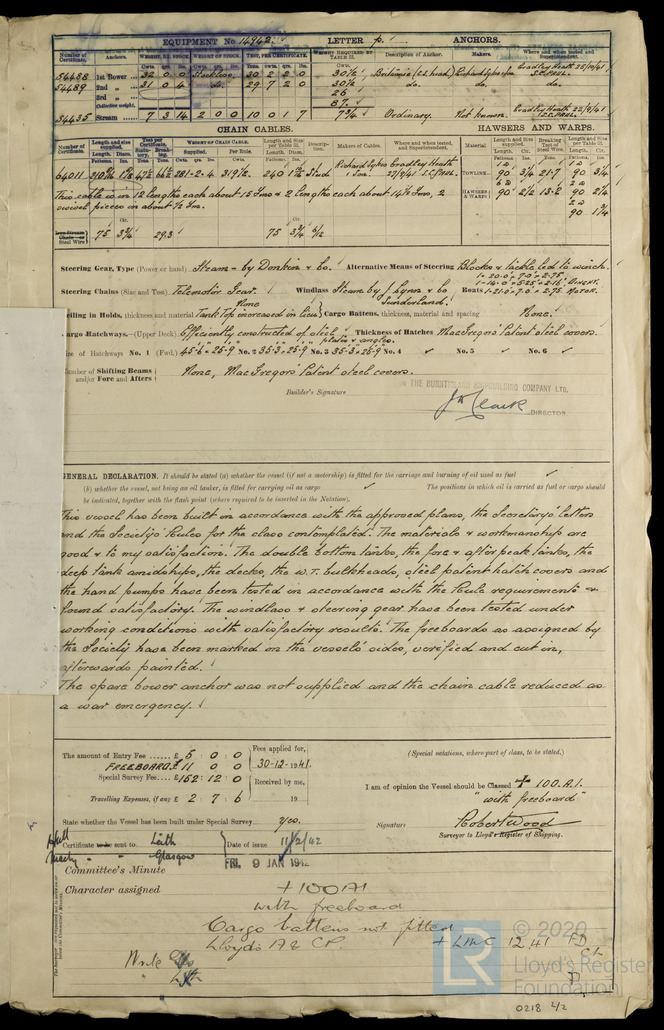 EQUIPMENT No 14942. LETTER p. ANCHORS.
Number of Certificate. Anchors. WEIGHT, EX. STOCK. WEIGHT OF STOCK. TEST, PER CERTIFICATE. WEIGHT REQUIRED BY TABLE 53. Description of Anchor. Makers. Where and when tested and Superintendent.
54488 1st Bower 32 0 0 Stockless. 30 2 2 0 30½ Britannia (C.S. head.) Bradley Heath 25/10/41
54489 2nd " 31 0 4 do. 29 7 2 0 30½ do. do. do.
3rd " 26
Collective weight. 87.
54435 Stream 7 3 14 2 0 0 10 0 1 7 7¾ Ordinary. Not known. Bradley Heath 22/9/41
CHAIN CABLES. HAWSERS AND WARPS.
Number of Certificate. Length and size supplied. Test per Certificate. WEIGHT OF CHAIN CABLE. Length and size per Table 53. Description. Makers of Cables. Where and when tested, and Superintendent. Material Length and Size supplied. Breaking Test of Steel Wire. Length and Size per Table 53.
64011 281-2-4 319½ 240 Stud Bradley Heath 27/9/41 TOWLINE 90 3¼ 21.7 90 3¼
This cable is in 12 lengths each about 15 fms & 2 lengths each about 14½ fms, 2 swivel pieces in about ½ fm. HAWSERS & WARPS 90 2½ 13.2 90 2¼
90 1¾
Steel Wire 75 3¾ 29.3 75 3¾ 6/12
Steering Gear, Type (Power or hand) Steam - by Donkin & Co. Alternative Means of Steering Blocks & tackle led to winch.
Steering Chains (Size and Test) Telemotor Gear. Windlass Steam by J Lynn & Co Sunderland. Boats
Ceiling in Holds, thickness and material None Tank Top increased in lieu Cargo Battens, thickness, material and spacing None.
Cargo Hatchways.-(Upper Deck) Efficiently constructed of steel plates & angles. Thickness of Hatches MacGregors' Patent steel covers.
Size of Hatchways No. 1 (Fwd.) 45'-6" × 25'-9" No. 2 35'-3" × 25'-9" No. 3 35'-3" × 25'-9" No. 4 ✓ No. 5 ✓ No. 6 ✓
Number of Shifting Beams and/or Fore and Afters None, MacGregors' Patent steel covers.
THE BURNTISLAND SHIPBUILDING COMPANY LTD.
Builder's Signature
Clark DIRECTOR
GENERAL DECLARATION. It should be stated (a) whether the vessel (if not a motorship) is fitted for the carriage and burning of oil used as fuel ✓
(b) whether the vessel, not being an oil tanker, is fitted for carrying oil as cargo ✓ The positions in which oil is carried as fuel or cargo should
be indicated, together with the flash point (where required to be inserted in the Notation).
This vessel has been built in accordance with the approved plans, the Secretarys' letters
and the Society's Rules for the class contemplated. The materials & workmanship are
good & to my satisfaction. The double bottom tanks, the fore & after peak tanks, the
deep tank amidships, the decks, the W.T. bulkheads, steel patent hatch covers and
the hand pumps have been tested in accordance with the Rule requirements &
found satisfactory. The windlass & steering gear have been tested under
working conditions with satisfactory results. The freeboards as assigned by
the Society have been marked on the vessels' sides, verified and cut in,
afterwards painted.
The spare bower anchor was not supplied and the chain cable reduced as
a war emergency.
The amount of Entry Fee £ 5 : 0 : 0 Fees applied for,
FREEBOARD £ 11 0 0 30-12-1941.
Special Survey Fee £ 162 : 12 : 0 Received by me,
Travelling Expenses, if any £ 2 : 7 : 6 19
(Special notations, where part of class, to be stated.)
I am of opinion the Vessel should be Classed + 100.A.1.
"with freeboard"
State whether the Vessel has been built under Special Survey Yes.
Signature Robert Wood
Surveyor to Lloyd's Register of Shipping.
Hull Certificate to be sent to Leith Date of issue 11/2/42
Machy " " Glasgow
FRI. 9 JAN 1942
Committee's Minute
Character assigned +100A1
with freeboard
Cargo battens not fitted
Lloyd's A & CP. + LMC 12.41 FD
CL
© 2020
Lloyd's Register
Foundation
0218 2/2